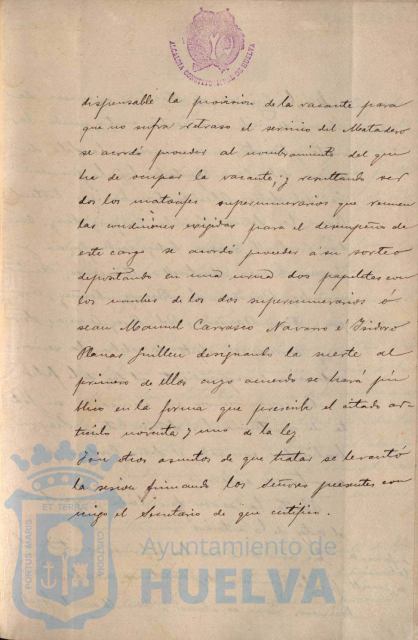 ALCALDIA CONSTITUCIONAL DE HUELVA
dispensable la provision de la vacante para
que no sufra retraso el servicio del Matadero
se acordó proceder al nombramiento del que
ha de ocupar la vacante; y resultando ser
dos los matarifes supernumerarios que reunen
las condiciones exigidas para el desempeño de
este cargo se acordó proceder á su sorteo
depositando en una urna dos papeletas con
los nombres de los dos supernumerarios ó
sean Manuel Carrasco Navarro é Isidoro
Planas Guillen designando la suerte al
primero de ellos cuyo acuerdo se hará pú
blico en la forma que prescribe el citado ar-
ticulo noventa y uno de la ley
Sin otros asuntos de que tratar se levantó
la sesion firmando los Señores presentes con
migo el Secretario de que certifico.
PORTUS MARIS ET TERRAE CUSTODIA
Ayuntamiento de
HUELVA